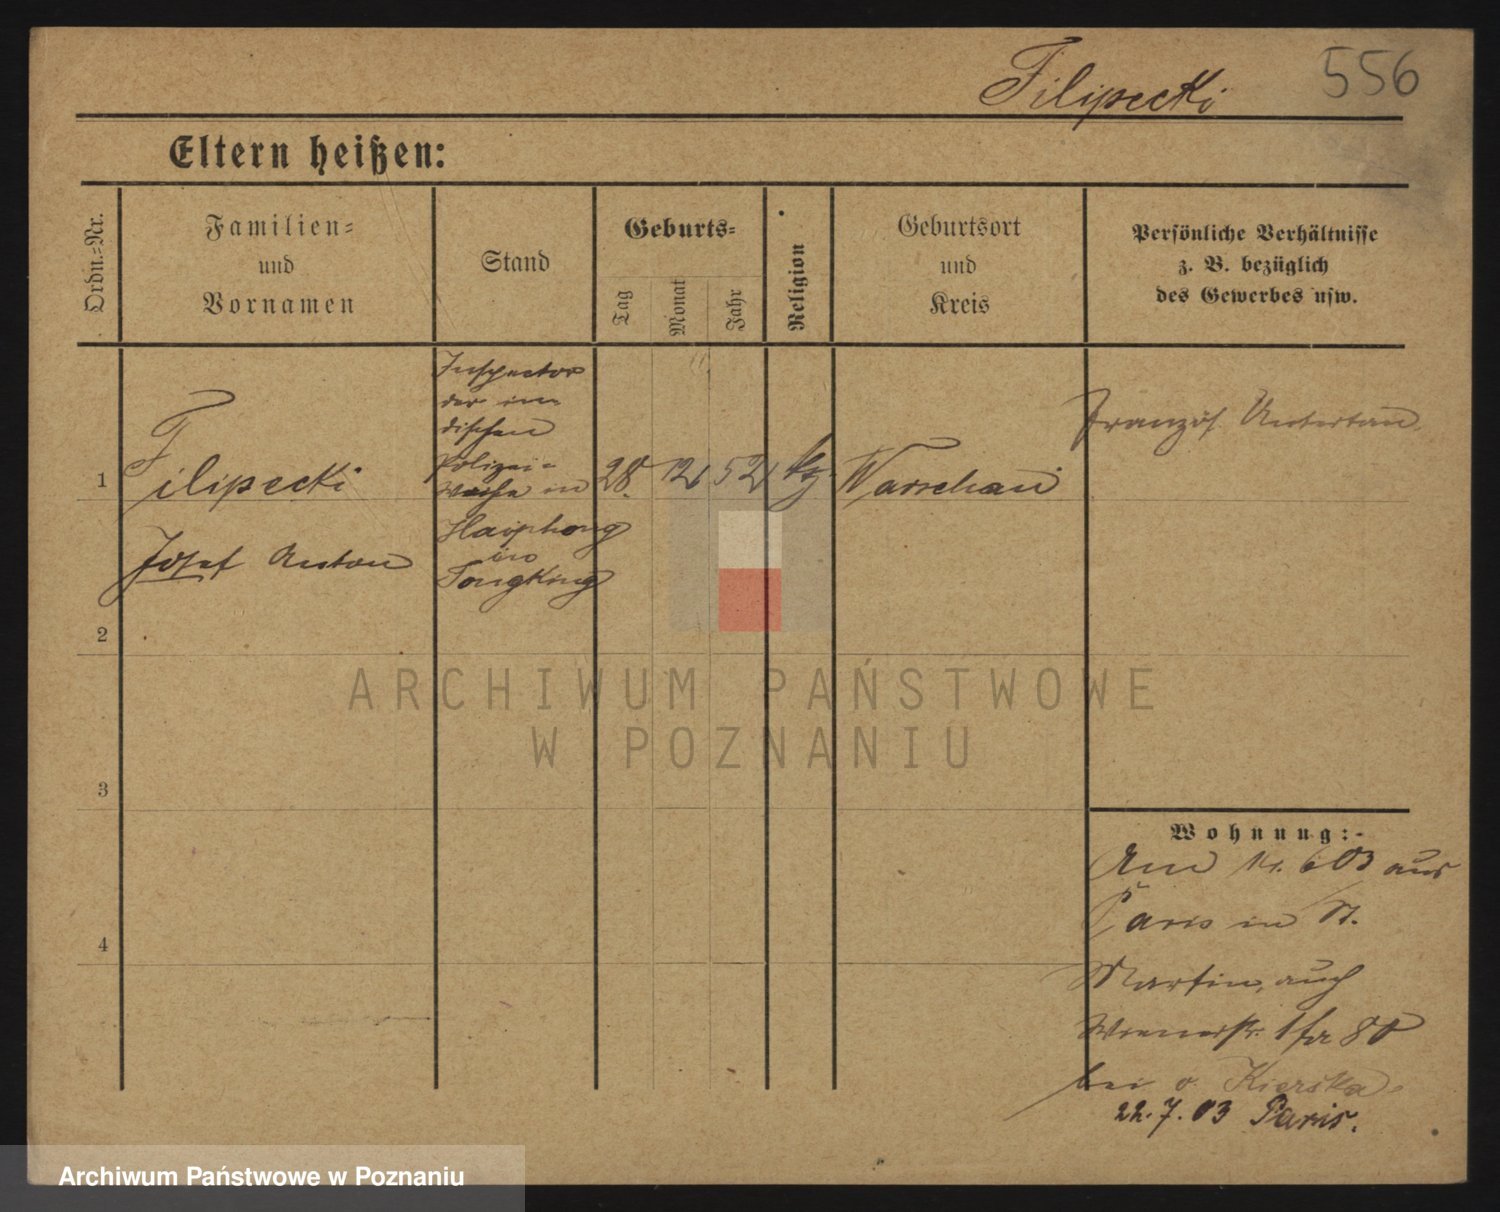 Filipecki
556
Eltern heißen:
Ordn.-Nr.
Familien-
und
Vornamen
Stand
Geburts-
Tag
Monat
Jahr
Religion
Geburtsort
und
Kreis
Persönliche Verhältnisse
z. B. bezüglich
des Gewerbes usw.
1
Filipecki
Josef Anton
Inspector
der in
dischen
Polizei-
Wache in
Haiphong
in
Tongking
28. 12 52
Warschau
Französ. Untertan
2
3
4
Wohnung:-
Am 6 03 aus
Paris in St.
Martin, auch
80
bei v. Kierska
22.7.03 Paris.
ARCHIWUM PAŃSTWOWE
W POZNANIU
Archiwum Państwowe w Poznaniu